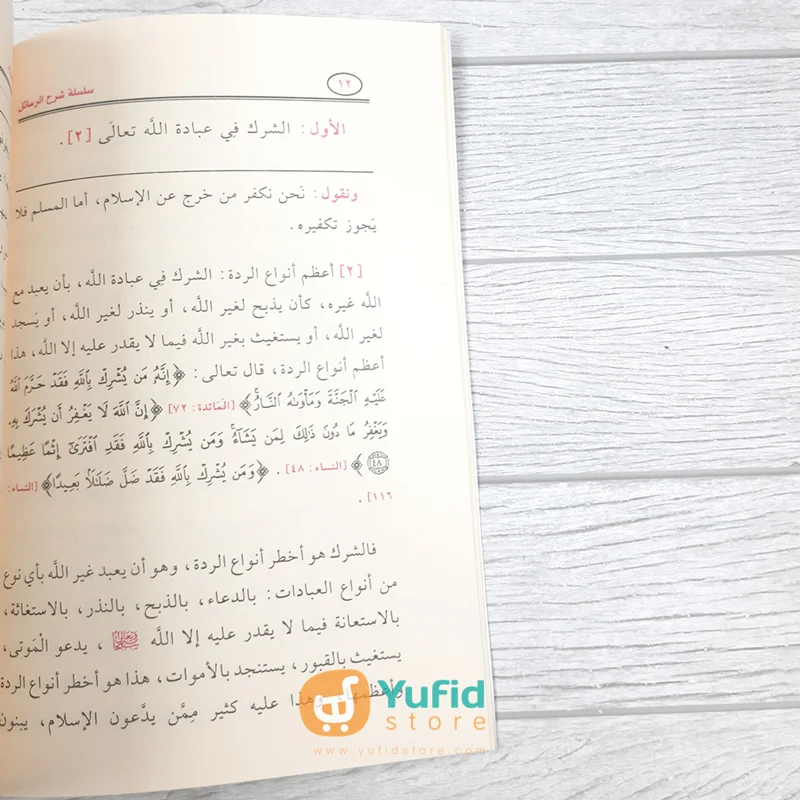 سلسلة شرح الرسائل
١٢
الأول: الشرك فِي عبادة اللَّه تعالَى [٢].
ونقول: نَحن نكفر من خرج عن الإسلام، أما المسلم فلا
يَجوز تكفيره.
[٢] أعظم أنواع الردة: الشرك فِي عبادة اللَّه، بأن يعبد مع
اللَّه غيره، كأن يذبح لغير اللَّه، أو ينذر لغير اللَّه، أو يَسجد
لغير اللَّه، أو يستغيث بغير اللَّه فيما لا يقدر عليه إلا اللَّه، هذا
أعظم أنواع الردة، قال تعالى: ﴿إِنَّهُۥ مَن يُشْرِكْ بِٱللَّهِ فَقَدْ حَرَّمَ ٱللَّهُ
عَلَيْهِ ٱلْجَنَّةَ وَمَأْوَىٰهُ ٱلنَّارُ﴾ [المَائدة: ٧٢] ﴿إِنَّ ٱللَّهَ لَا يَغْفِرُ أَن يُشْرَكَ بِهِۦ
وَيَغْفِرُ مَا دُونَ ذَٰلِكَ لِمَن يَشَآءُ وَمَن يُشْرِكْ بِٱللَّهِ فَقَدِ ٱفْتَرَىٰٓ إِثْمًا عَظِيمًا
٤٨﴾ [النساء: ٤٨]. ﴿وَمَن يُشْرِكْ بِٱللَّهِ فَقَدْ ضَلَّ ضَلَٰلًۢا بَعِيدًا﴾ [النساء:
١١٦].
فالشرك هو أخطر أنواع الردة، وهو أن يعبد غير اللَّه بأي نوع
من أنواع العبادات: بالدعاء، بالذبح، بالنذر، بالاستغاثة،
بالاستعانة فيما لا يقدر عليه إلا اللَّه، يدعو الْمَوتى،
يستغيث بالقبور، يستنجد بالأموات، هذا هو أخطر أنواع الردة
وأعظمها، وهذا عليه كثير مِمَّن يدَّعون الإسلام، يبنون
Yufid
store
www.yufidstore.com